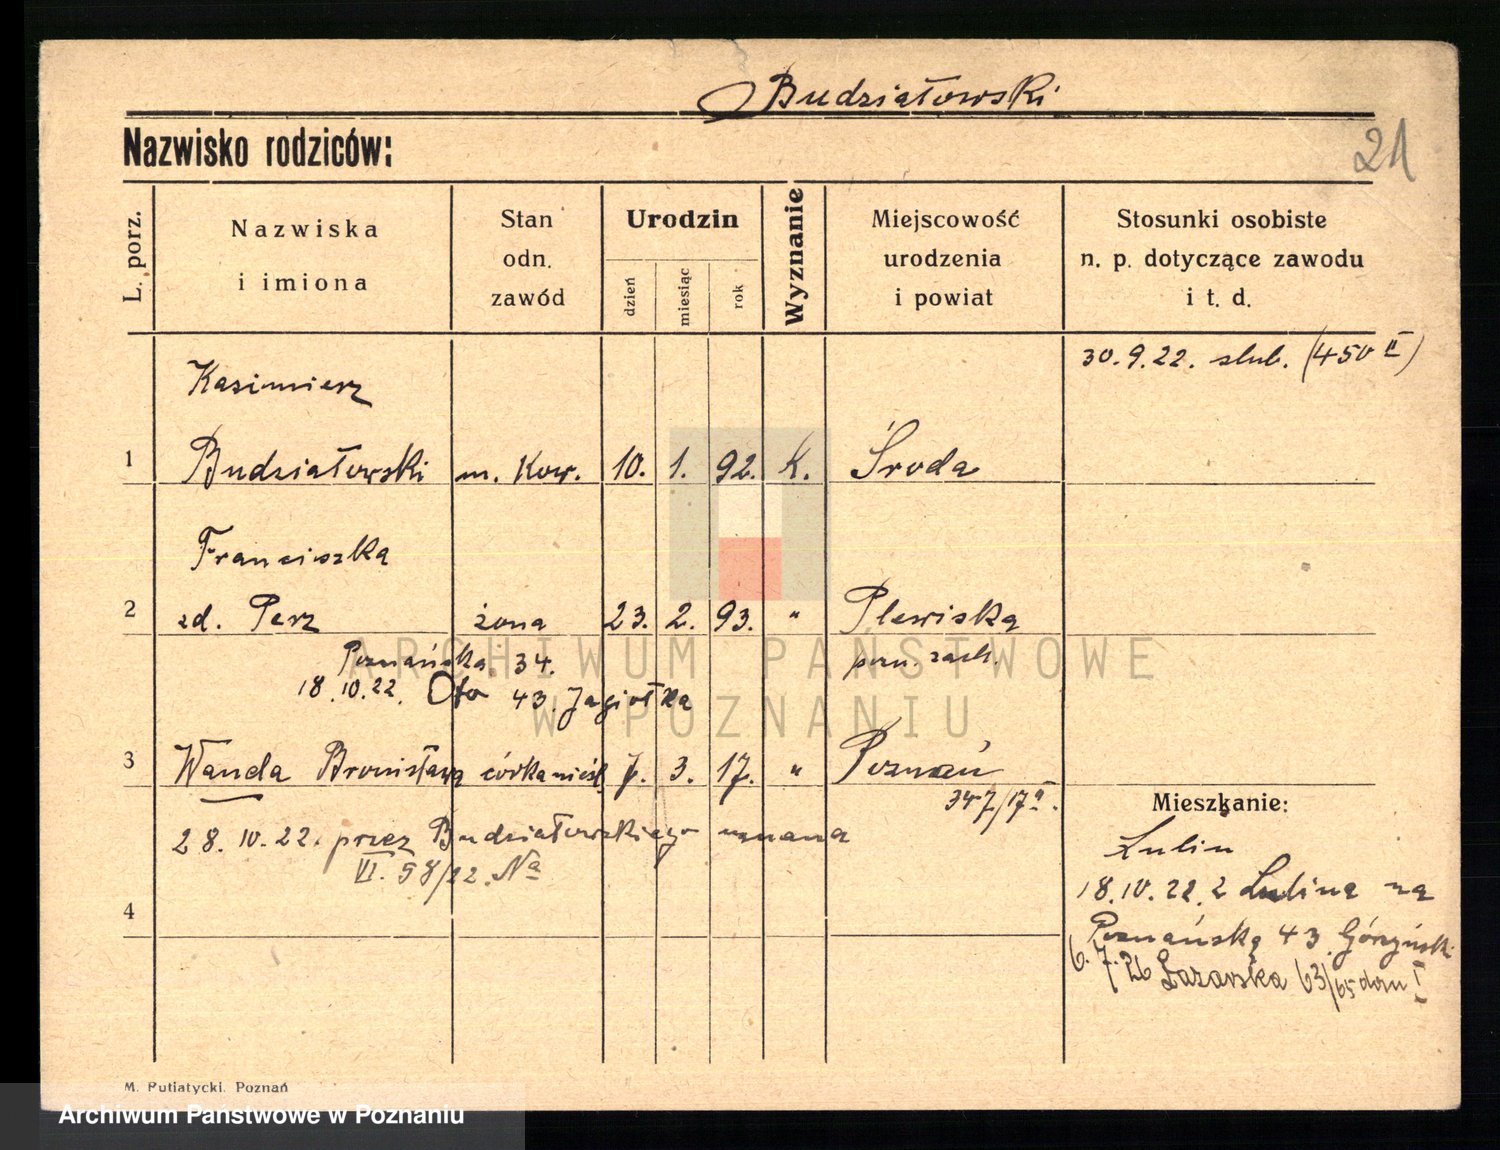 Budziałowski
Nazwisko rodziców:
21
L. porz.
Nazwiska
i imiona
Stan
odn.
zawód
Urodzin
dzień
miesiąc
rok
Wyznanie
Miejscowość
urodzenia
i powiat
Stosunki osobiste
n. p. dotyczące zawodu
i t. d.
30.9.22. slub. (450 II)
Kazimierz
1 Budziałowski m. Kow. 10. 1. 92. K. Środa
Franciszka
2 zd. Perz żona 23. 2. 93. " Plewiska
pozn. zach.
Poznańska 34.
18.10.22. 43. Jagiołka
3 Wanda Bronisława córka nieśl 7. 3. 17. " Poznań
347/17
28.10.22. przez Budziałowskiego uznana
VI. 58/22. Na
4
Mieszkanie:
Lulin
18.10.22. z Lulina na
Poznańską 43 Górzyński
6.7.26 Łazarska 63/65 dom I
M. Putiatycki. Poznań
ARCHIWUM PAŃSTWOWE
W POZNANIU
Archiwum Państwowe w Poznaniu